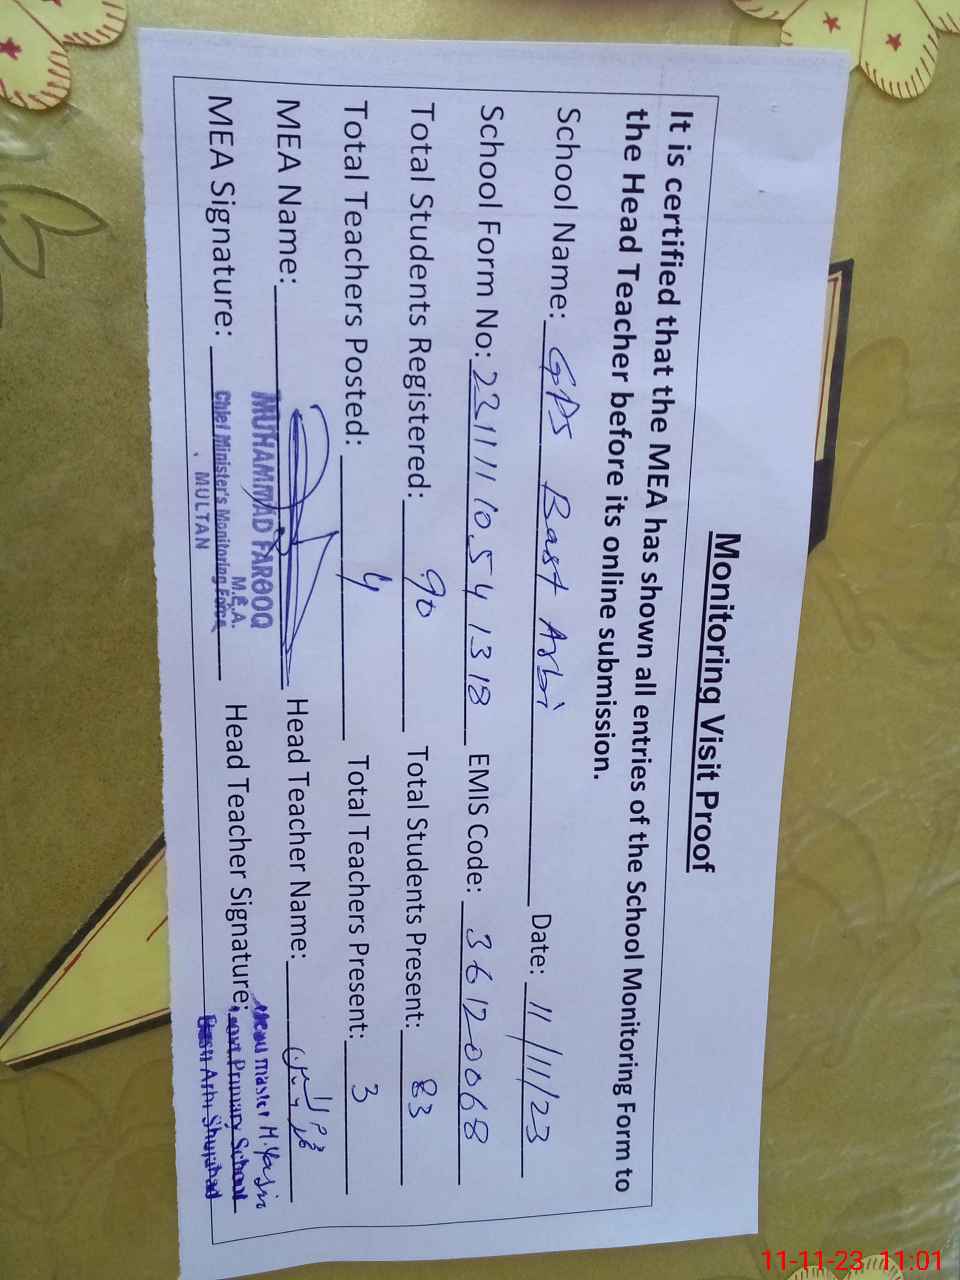 Monitoring Visit Proof
It is certified that the MEA has shown all entries of the School Monitoring Form to
the Head Teacher before its online submission.
School Name: GPS Bast Arbi Date: 11/11/23
School Form No: 23111110541318 EMIS Code: 36120068
Total Students Registered: 90 Total Students Present: 83
Total Teachers Posted: 4 Total Teachers Present: 3
MEA Name: Head Teacher Name:
MUHAMMAD FAROOQ
M.E.A.
MEA Signature: Chief Minister's Monitoring Force
MULTAN
Head Teacher Signature:
Head master M. Yasin
Govt. Primary School
Basti Arbi Shujabad
11-11-23 11:01